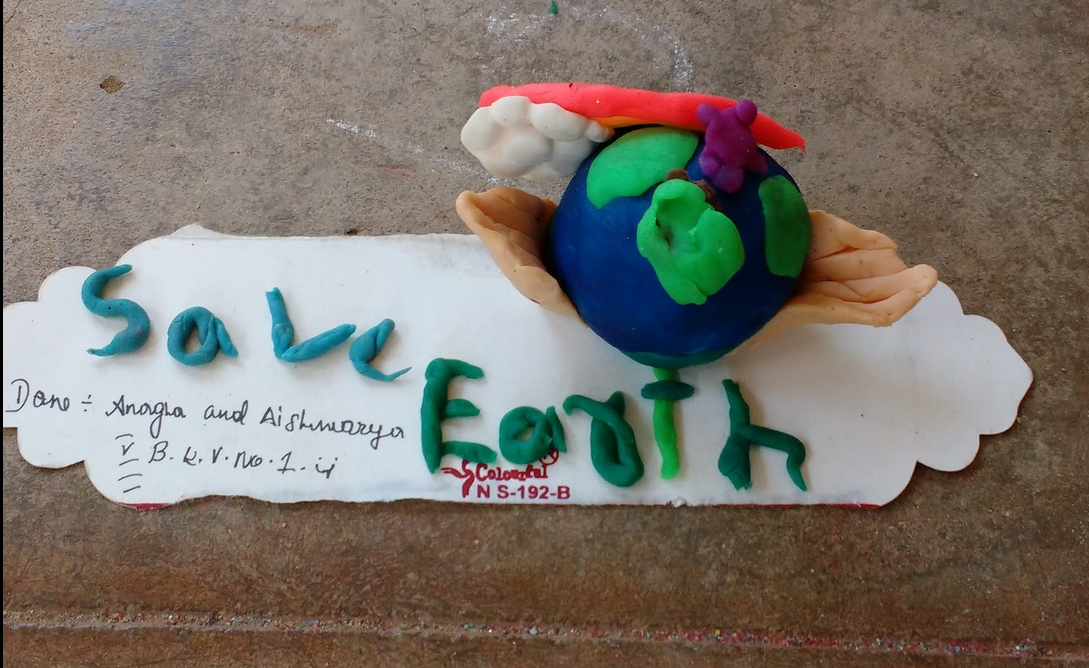 Save
Earth
Done :- Anagha and Aishwarya
V B. K. V. No. 1.
Colourful
N S-192-B